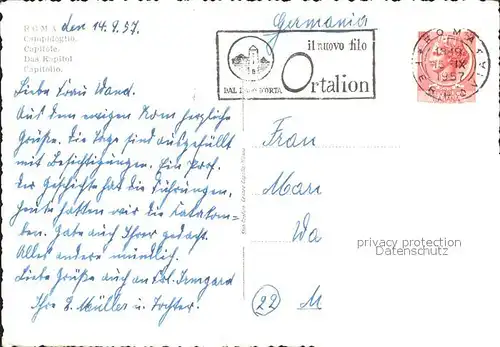 ROMA den 14.9.57.
Campidoglio.
Capitole.
Das Kapitol
Capitolio.
Liebe Frau Wand.
Aus dem ewigen Rom herzliche
Grüße. Die Tage sind ausgefüllt
mit Besichtigungen. Ein Prof.
der Geschichte hat die Führungen.
Heute hatten wir die Katakom=
ben. Habe auch Ihrer gedacht.
Alles andere mündlich.
Liebe Grüße auch an Frl. Irmgard
Ihre L. Müller u. Tochter.
Germania
il nuovo filo
Ortalion
ROMA
1957
Frau
Mar
Wa
22 M
privacy protection
Datenschutz